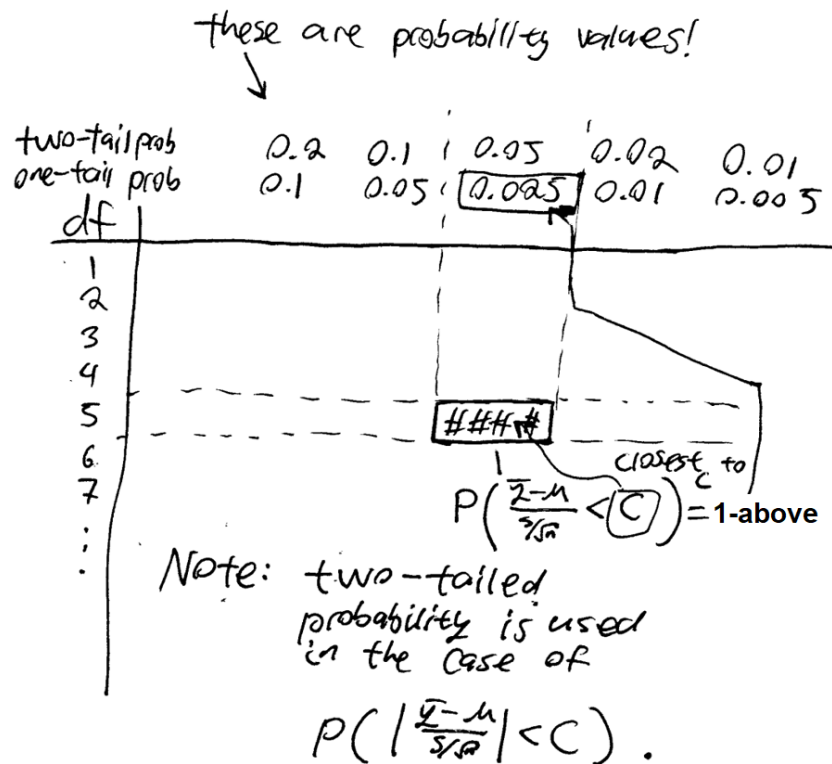 these are probability values!
two-tail prob 0.2 0.1 0.05 0.02 0.01
one-tail prob 0.1 0.05 0.025 0.01 0.005
df
1
2
3
4
5 ####
6
7
⋮
closest to
c
P( (ȳ-μ)/(s/√n) < C ) = 1-above
Note: two-tailed
probability is used
in the case of
P( | (ȳ-μ)/(s/√n) | < C ).